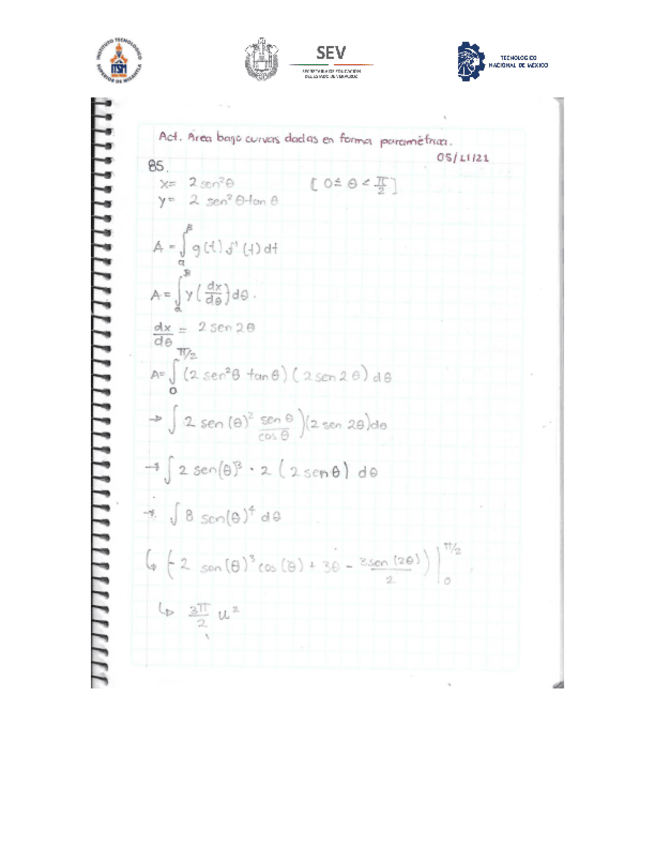 SEV
SECRETARÍA DE EDUCACIÓN
DEL ESTADO DE VERACRUZ
TECNOLOGICO
NACIONAL DE MÉXICO
Act. Area bajo curvas dadas en forma paramétrica.
05/11/21
85.
x= 2 sen²θ [ 0≤ θ < π/2 ]
y= 2 sen²θ tan θ
A = ∫ₐᵝ g(t) f'(t) dt
A = ∫ₐᵝ y (dx/dθ) dθ.
dx/dθ = 2 sen 2θ
A= ∫₀^π/2 (2 sen²θ tan θ) ( 2 sen 2θ) dθ
→ ∫ 2 sen (θ)² sen θ/cos θ )(2 sen 2θ)dθ
→ ∫ 2 sen(θ)³ · 2 ( 2 sen θ) dθ
→ ∫ 8 sen(θ)⁴ dθ
↳ (-2 sen(θ)³ cos (θ) + 3θ - 3sen (2θ)/2 ) |₀^π/2
↳ 3π/2 u²